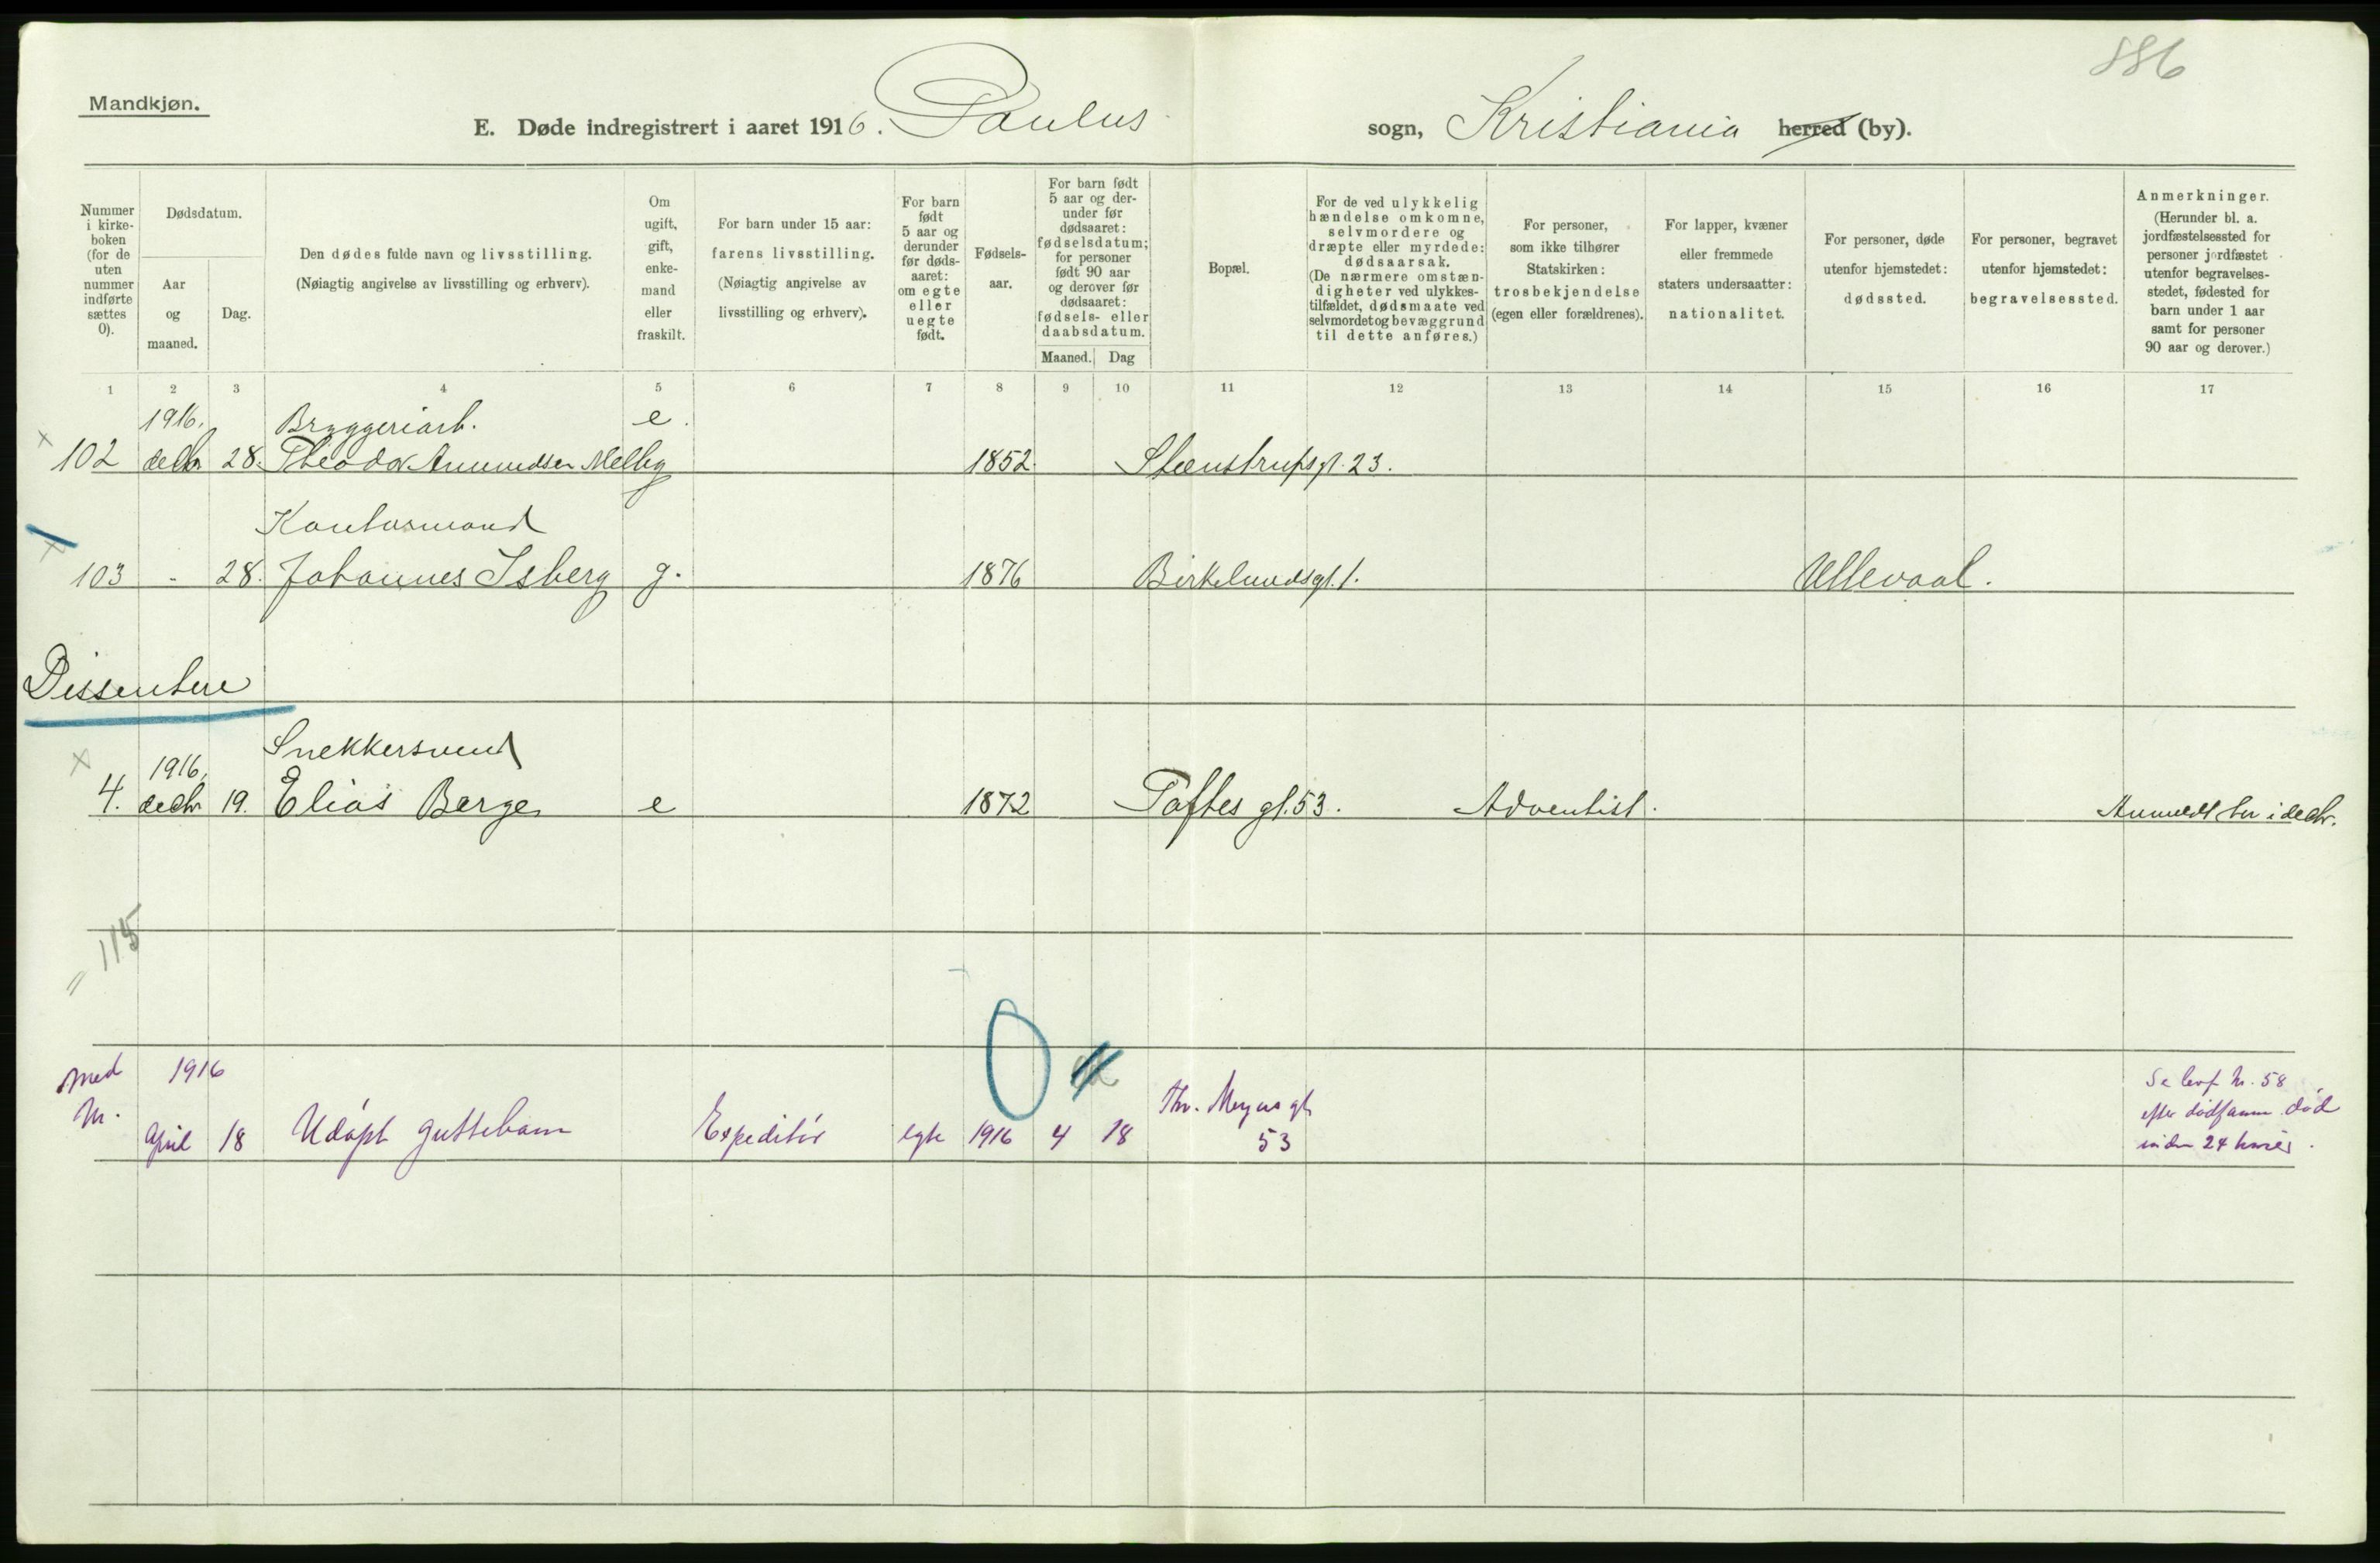 886
Mandkjøn.
E. Døde indregistrert i aaret 1916. Paulus sogn, Kristiania herred (by).
Nummer i kirke- boken (for de uten nummer indførte sættes 0).
Dødsdatum.
Aar og maaned.
Dag.
Den dødes fulde navn og livsstilling.
(Nøiagtig angivelse av livsstilling og erhverv).
Om ugift, gift, enke- mand eller fraskilt.
For barn under 15 aar:
farens livsstilling.
(Nøiagtig angivelse av livsstilling og erhverv).
For barn født 5 aar og derunder før døds- aaret: om egte eller uegte født.
Fødsels- aar.
For barn født 5 aar og der- under før dødsaaret: fødselsdatum; for personer født 90 aar og derover før dødsaaret: fødsels- eller daabsdatum.
Maaned. Dag
Bopæl.
For de ved ulykkelig hændelse omkomne, selvmordere og dræpte eller myrdede: dødsaarsak. (De nærmere omstæn- digheter ved ulykkes- tilfældet, dødsmaate ved selvmordet og bevæggrund til dette anføres.)
For personer, som ikke tilhører Statskirken: trosbekjendelse (egen eller forældrenes).
For lapper, kvæner eller fremmede staters undersaatter: nationalitet.
For personer, døde utenfor hjemstedet: dødssted.
For personer, begravet utenfor hjemstedet: begravelsessted.
Anmerkninger.
(Herunder bl. a. jordfæstelsessted for personer jordfæstet utenfor begravelses- stedet, fødested for barn under 1 aar samt for personer 90 aar og derover.)
1 2 3 4 5 6 7 8 9 10 11 12 13 14 15 16 17
1916. Bryggeriarb. e.
102 decbr 28. Theodor Amundsen Melby 1852. Steenstrupsgt. 23.
Kontormand
103 - 28. Johannes Isberg g. 1876 Birkelundsgt. 1. Ullevaal.
Dissentere
1916, Snekkersvend
4. decbr 19. Elias Berge e 1872 Toftes gt. 53. Adventist. Anmeldt her i decbr.
115
med 1916 Thv. Meyers gt Se levf. nr. 58
nr. April 18 Udøpt guttebarn Expeditør egte 1916 4 18 53 efter dødsanm. død
inden 24 timer.